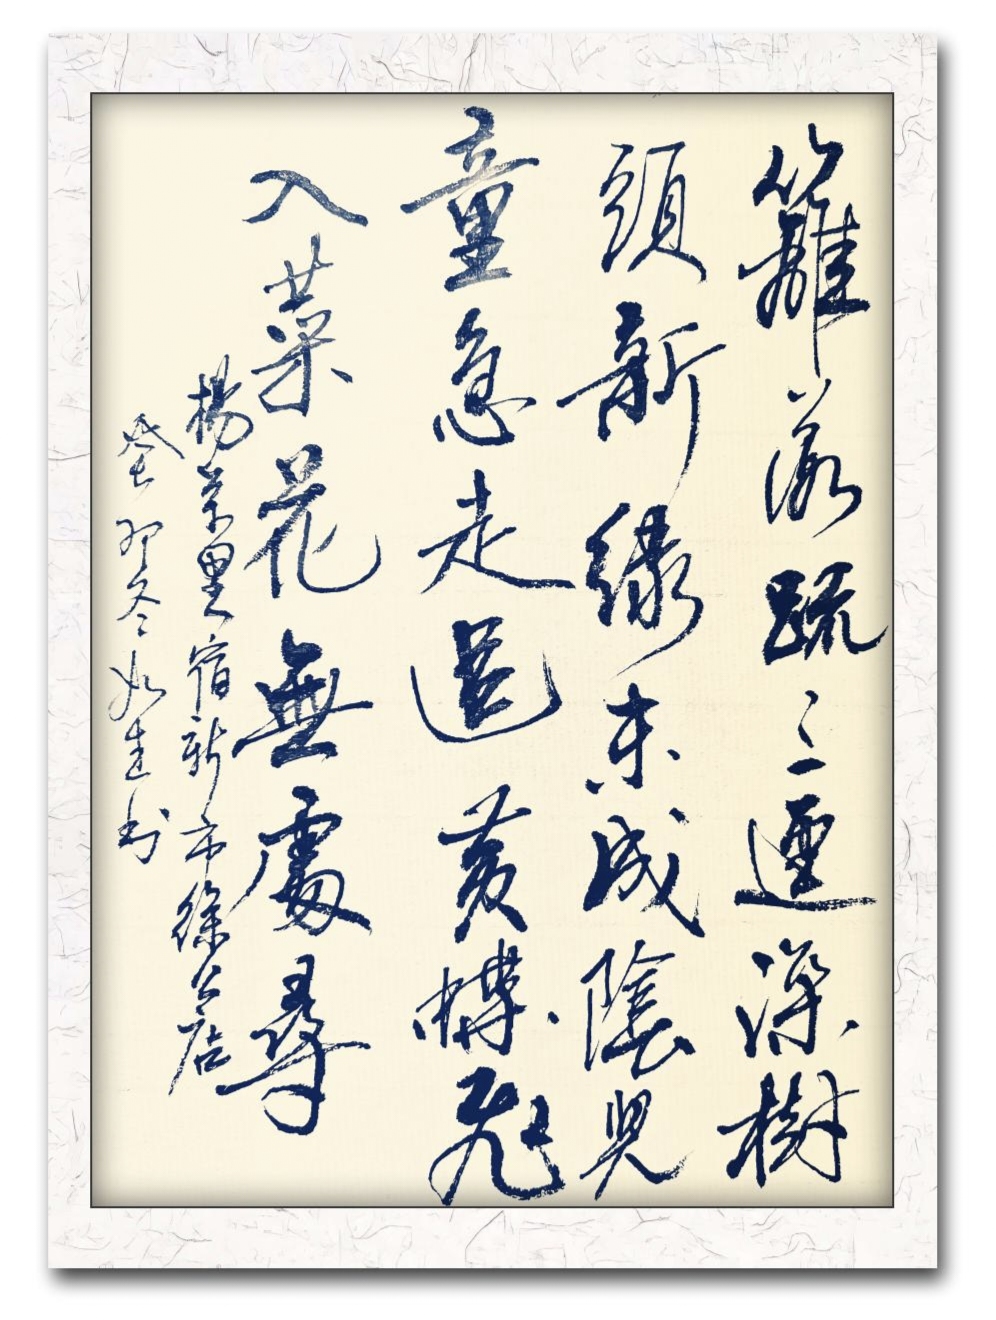 籬落疏〻一逕深樹
頭新緑未成陰兒
童急走追黃蝶飛
入菜花無處尋
楊萬里宿新市徐公店
癸卯冬如書